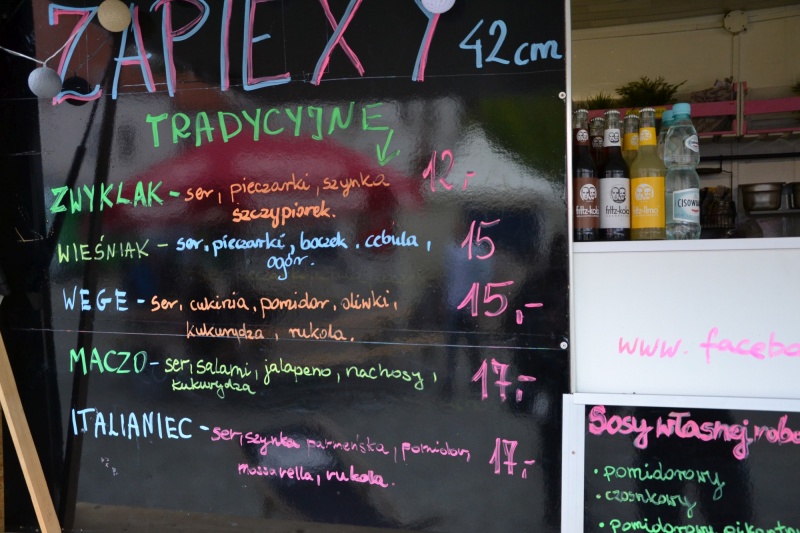 ZAPIEXY 42cm
TRADYCYJNE
ZWYKLAK - ser, pieczarki, szynka 12,-
szczypiorek.
WIEŚNIAK - ser, pieczarki, boczek, cebula, 15
ogór.
WEGE - ser, cukinia, pomidor, oliwki, 15,-
kukurydza, rukola.
MACZO - ser, salami, jalapeno, nachosy, 17,-
kukurydza
ITALIANIEC - ser, szynka parmeńska, pomidor, 17,-
mossarella, rukola.
fritz-kola
fritz-kola
CISOWIA
www.facebo
Sosy własnej robo
• pomidorowy
• czosnkowy
• pomidorowy pikantny